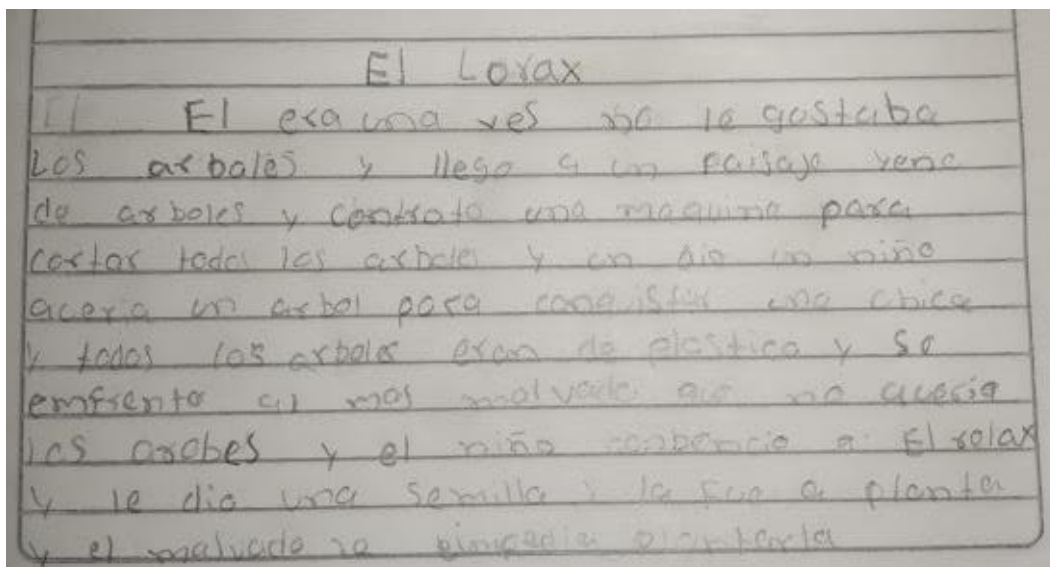 El Lorax
El era una ves no le gostaba
Los arboles y llego a un paisaje yeno
de arboles y contrato una maquina para
cortar todos los arboles y un dia un niño
aceria un arbol para conquistar una chica
y todos los arboles eran de plastico y se
emfrento al mas malvado que no queria
los arobes y el niño conbencio a El rolax
y le dio una semilla y la fue a planta
y el malvado le plantarla